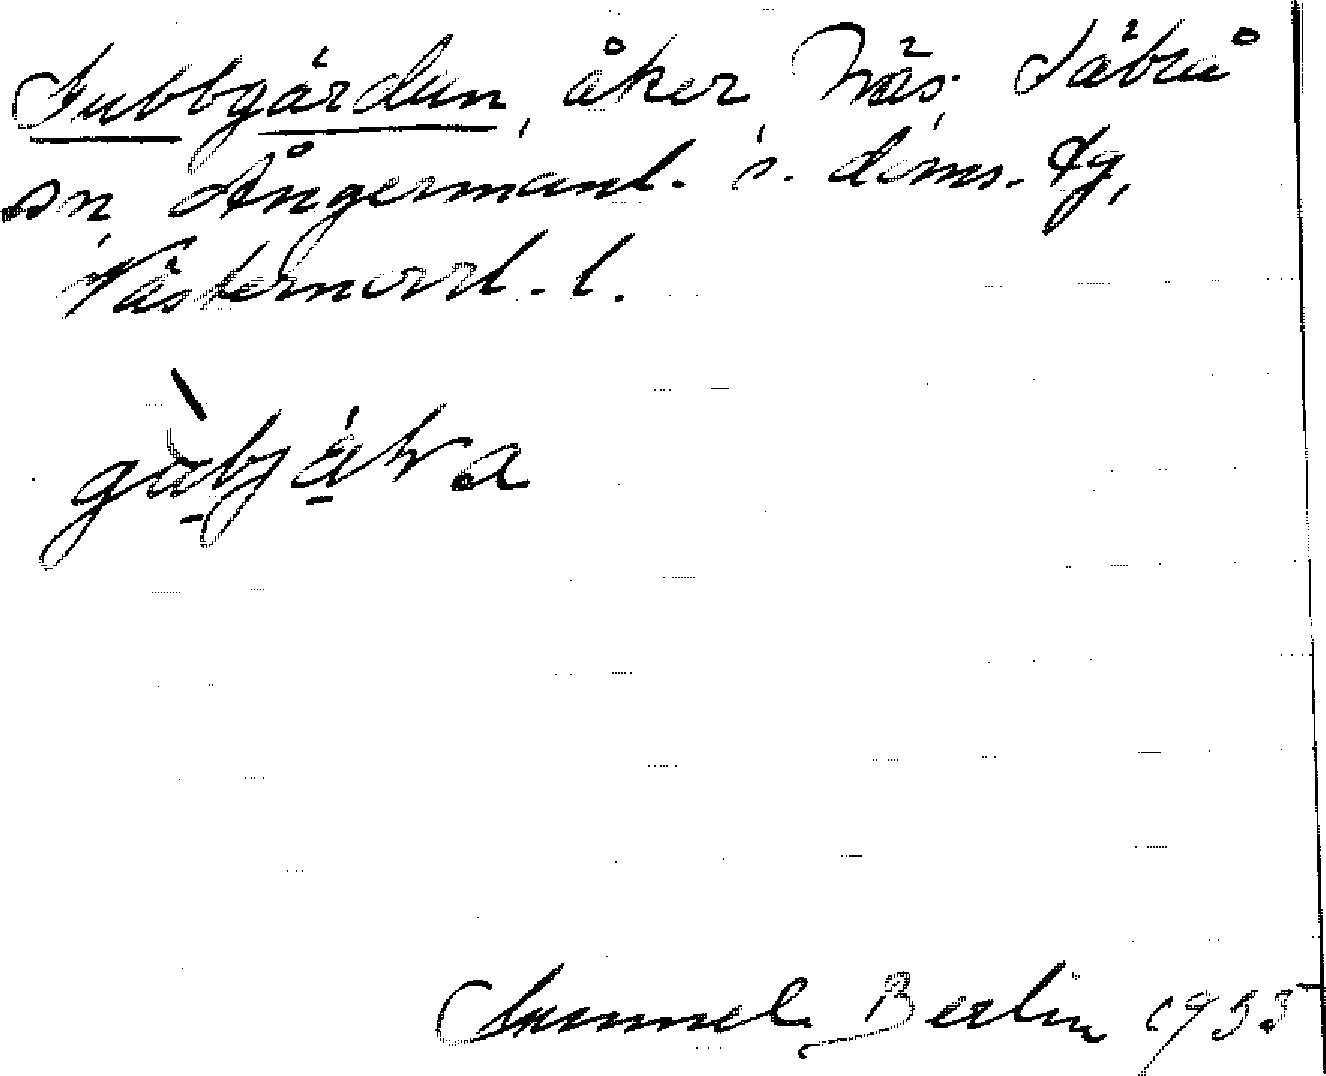 Gubbgärdan, åker Näs, Säbrå
sn, Ångermanl. s. doms. tg,
Västernorrl. l.
Samuel Berlin 1933